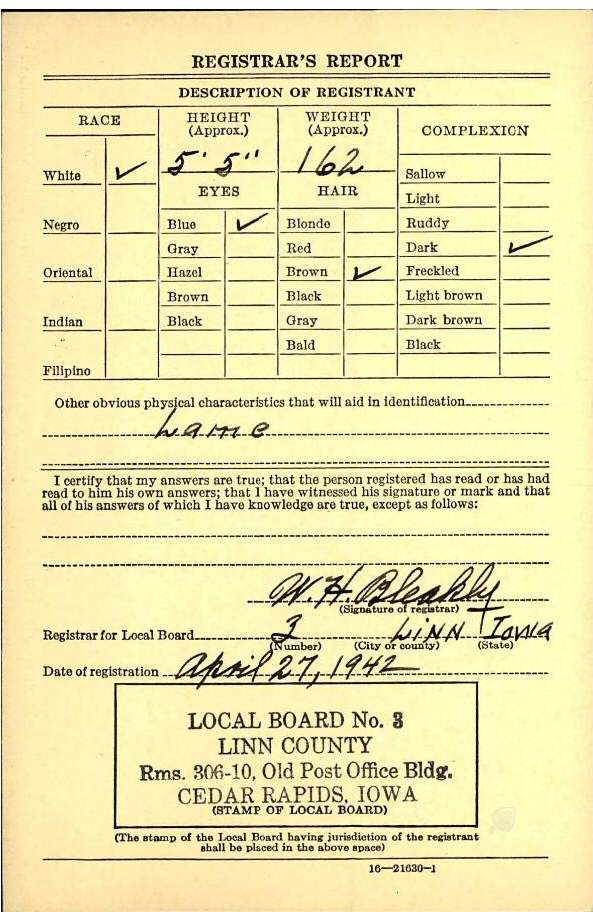 REGISTRAR'S REPORT
DESCRIPTION OF REGISTRANT
RACE HEIGHT (Approx.) WEIGHT (Approx.) COMPLEXION
White ✓ 5' 5" 162 Sallow
EYES HAIR Light
Negro Blue ✓ Blonde Ruddy
Gray Red Dark ✓
Oriental Hazel Brown ✓ Freckled
Brown Black Light brown
Indian Black Gray Dark brown
Bald Black
Filipino
Other obvious physical characteristics that will aid in identification
Lame
I certify that my answers are true; that the person registered has read or has had
read to him his own answers; that I have witnessed his signature or mark and that
all of his answers of which I have knowledge are true, except as follows:
W. H. Bleakly
(Signature of registrar)
Registrar for Local Board 3 LINN Iowa
(Number) (City or county) (State)
Date of registration April 27, 1942
LOCAL BOARD No. 3
LINN COUNTY
Rms. 306-10, Old Post Office Bldg.
CEDAR RAPIDS, IOWA
(STAMP OF LOCAL BOARD)
(The stamp of the Local Board having jurisdiction of the registrant
shall be placed in the above space)
16—21630-1